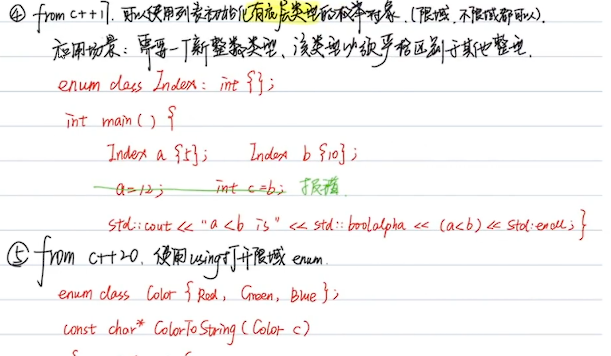 ④ from c++17, 可以使用列表初始化有底层类型的枚举对象.(限域, 不限域都可以).
应用场景: 需要一个新整数类型, 该类型必须严格区别于其他整型.
enum class Index: int {};
int main() {
Index a {5}; Index b {10};
a=12; int c=b; 报错
std::cout << "a<b is" << std::boolalpha << (a<b) << std::endl; }
⑤ from c++20, 使用using打开限域 enum.
enum class Color { Red, Green, Blue };
const char* ColorToString (Color c)